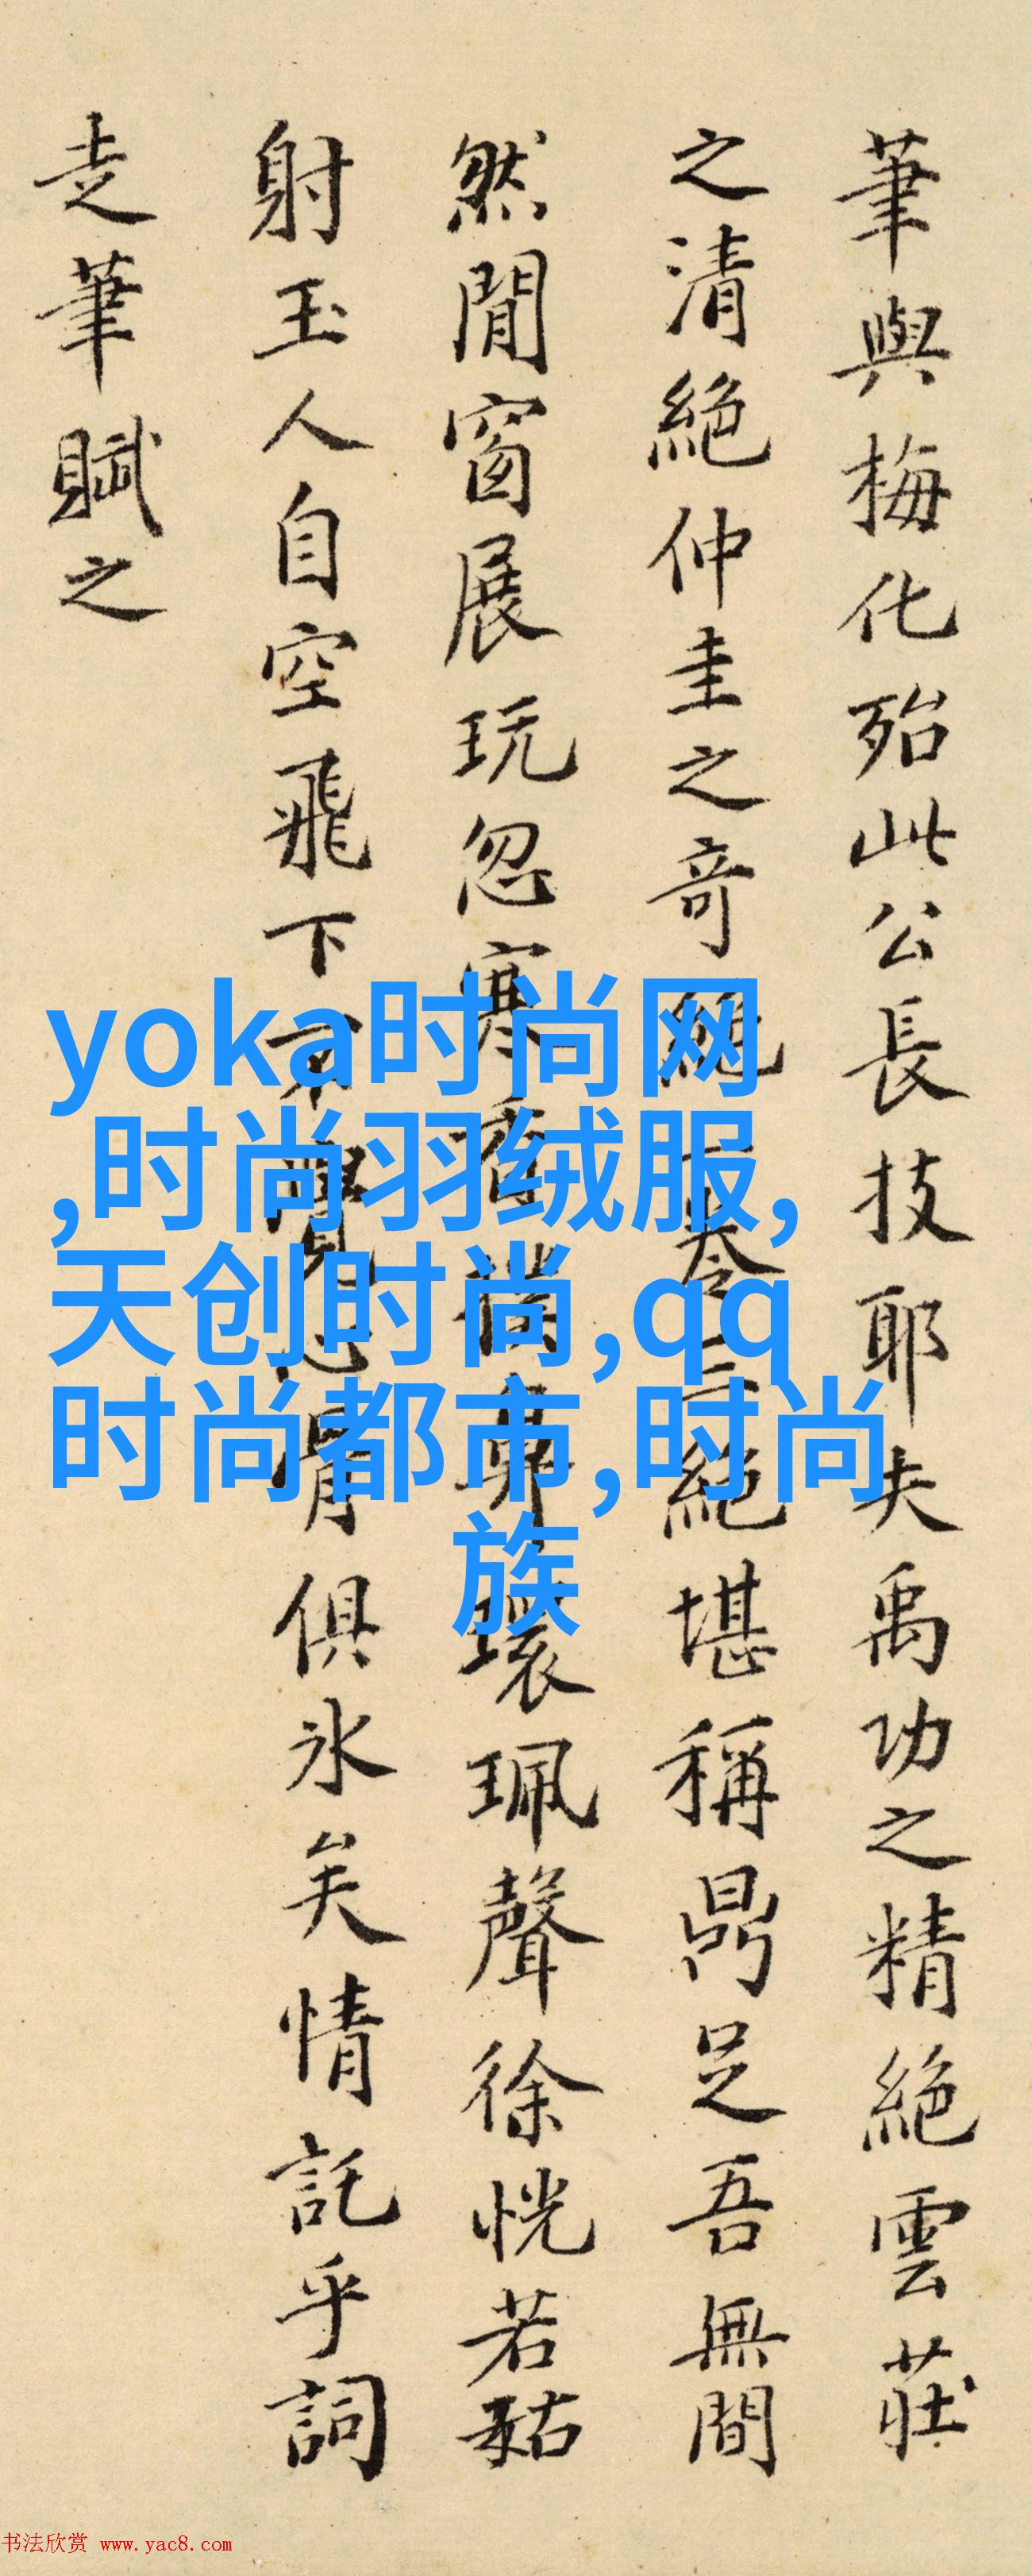 筆與梅化殆此公長技耶夫禹功之精絕雲莊
之清絕仲圭之奇絕一卷三絕堪稱鼎足吾無間
然閒窗展玩忽寒香撲鼻環珮聲徐恍若藐姑
射玉人自空飛下不覺心骨俱冰矣情託乎詞
走筆賦之
yoka时尚网
,时尚羽绒服,
天创时尚,qq
时尚都市,时尚
族
书法欣赏 www.yac8.com